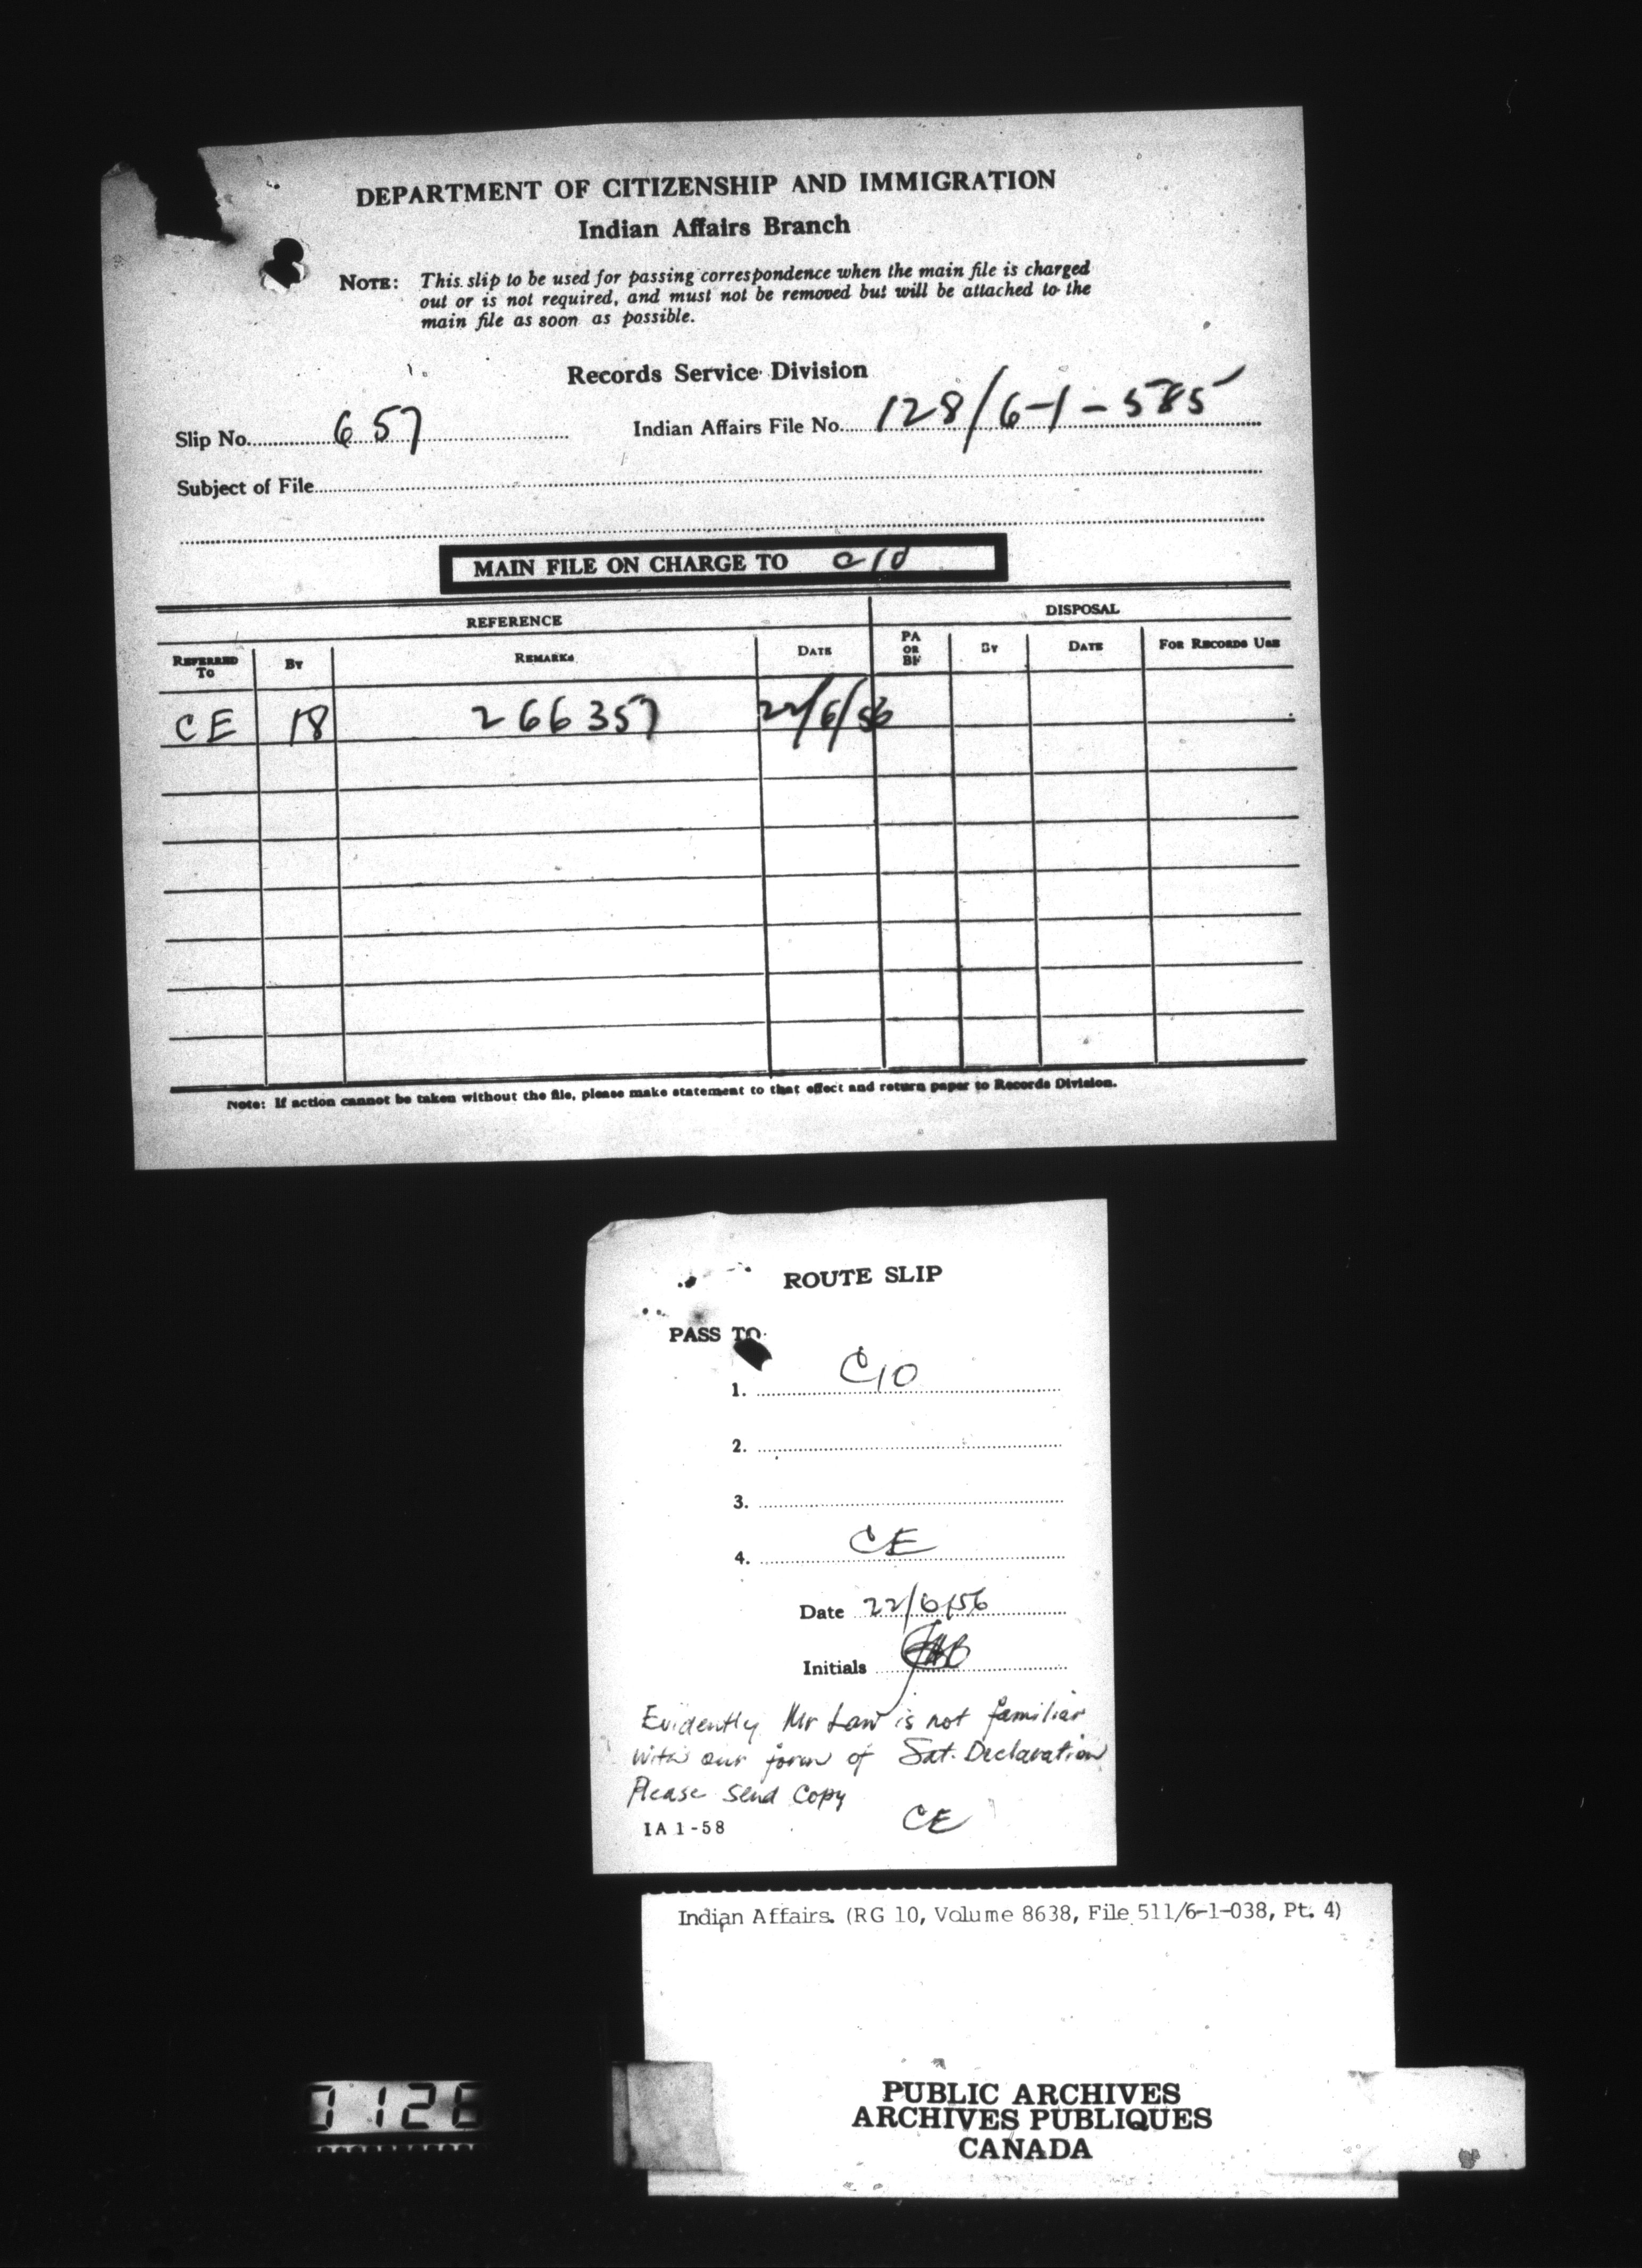 DEPARTMENT OF CITIZENSHIP AND IMMIGRATION
Indian Affairs Branch
NOTE: This slip to be used for passing correspondence when the main file is charged
out or is not required, and must not be removed but will be attached to the
main file as soon as possible.
Records Service Division
Slip No. 657 Indian Affairs File No. 128/6-1-585
Subject of File
MAIN FILE ON CHARGE TO C10
REFERENCE DISPOSAL
REFERRED TO BY REMARKS DATE PA OR BF BY DATE FOR RECORDS USE
CE 18 266357 22/6/56
Note: If action cannot be taken without the file, please make statement to that effect and return paper to Records Division.
ROUTE SLIP
PASS TO
1. C10
2.
3.
4. CE
Date 22/6/56
Initials
Evidently Mr Law is not familiar
with our form of Sat. Declaration
Please send Copy
CE
IA 1-58
Indian Affairs. (RG 10, Volume 8638, File 511/6-1-038, Pt. 4)
PUBLIC ARCHIVES
ARCHIVES PUBLIQUES
CANADA
1126